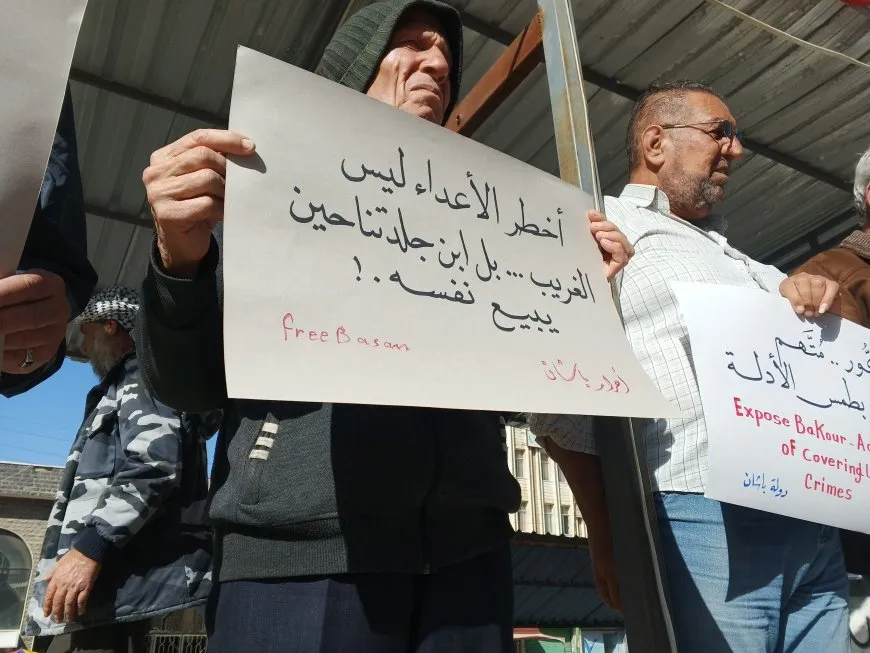 أخطر الأعداء ليس
الغريب ... بل ابن جلدتناحين
يبيع نفسه . !
free Basan
أحرار باشان
.. مُتَّهم
بطمس الأدلة
Expose BaKour_A
of Covering
Crimes
دولة باشان